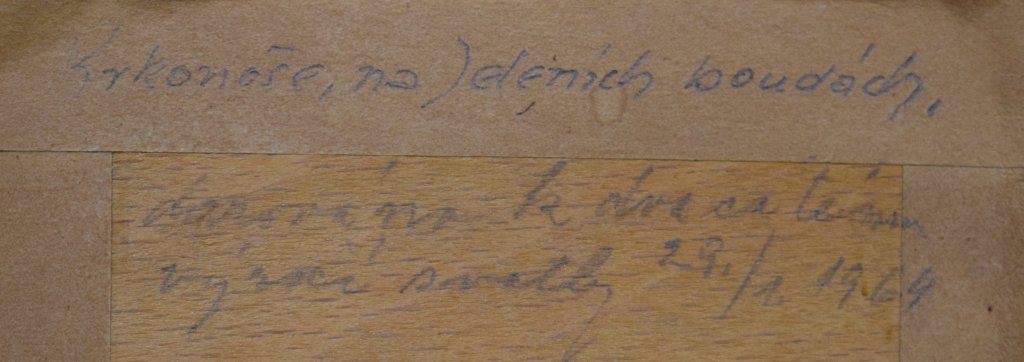 Krkonoše, na Jeleních boudách,
darováno k dvacátému
výročí svatby 29./1 1964